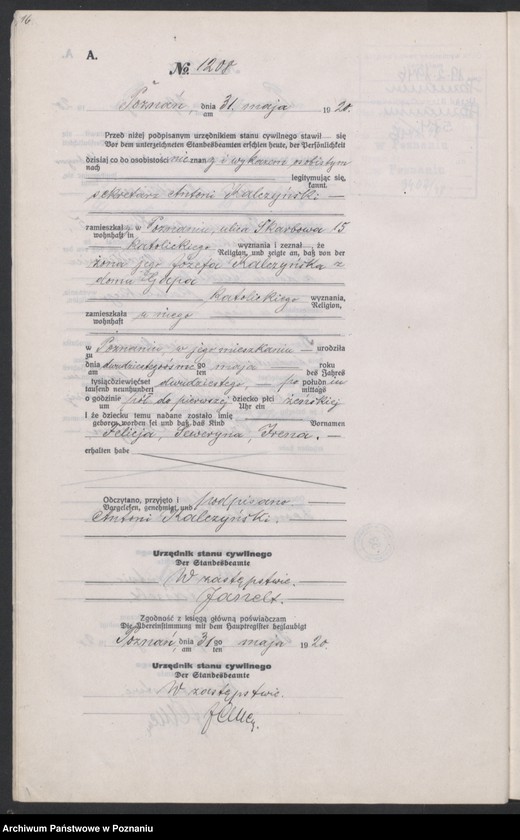 16
A.
No. 1208
Poznań, dnia 31. maja 1920.
am
Przed niżej podpisanym urzędnikiem stanu cywilnego stawił się
Vor dem unterzeichneten Standesbeamten erschien heute, der Persönlichkeit
dzisiaj co do osobistości
nach
legitymując się,
kannt.
sekretarz Antoni Kalczyński
zamieszkał y w Poznaniu, ulica Skarbowa 15
wohnhaft in
katolickiego wyznania i zeznał, że
Religion, und zeigte an, daß von der
żona jego Józefa Kalczyńska z
domu
katolickiego wyznania,
Religion,
zamieszkała u niego
wohnhaft
w Poznaniu, w jego mieszkaniu urodziła
zu
dnia go maja roku
am ten des Jahres
tysiącdziewięćset dwudziestego, po połudn iu
tausend neunhundert mittags
o godzinie pół do pierwszej dziecko płci żeńskiej
um Uhr ein
i że dziecku temu nadane zostało imię
geboren worden sei und daß das Kind Vornamen
Felicja, Seweryna, Irena.
erhalten habe
Odczytano, przyjęto i podpisano.
Vorgelesen, genehmigt und
Antoni Kalczyński.
Urzędnik stanu cywilnego
Der Standesbeamte
W zastępstwie.
Janelt.
Zgodność z księgą główną poświadczam
Die Übereinstimmung mit dem Hauptregister beglaubigt
Poznań, dnia 31 go maja 1920.
am ten
Urzędnik stanu cywilnego
Der Standesbeamte
W zastępstwie.
Archiwum Państwowe w Poznaniu